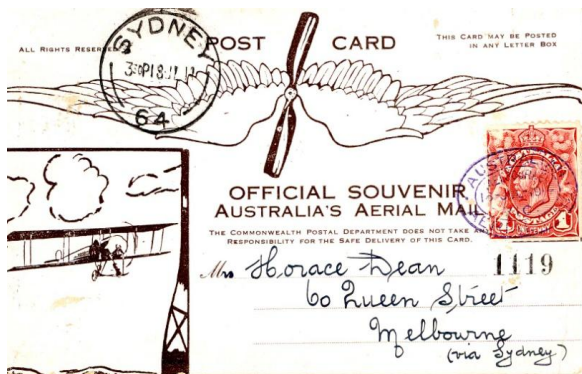 ALL RIGHTS RESERVED
POST CARD
THIS CARD MAY BE POSTED
IN ANY LETTER BOX
SYDNEY
64
OFFICIAL SOUVENIR
AUSTRALIA'S AERIAL MAIL
THE COMMONWEALTH POSTAL DEPARTMENT DOES NOT TAKE ANY
RESPONSIBILITY FOR THE SAFE DELIVERY OF THIS CARD.
POSTAGE
1119
Mrs Horace Dean
60 Queen Street
Melbourne
(via Sydney)